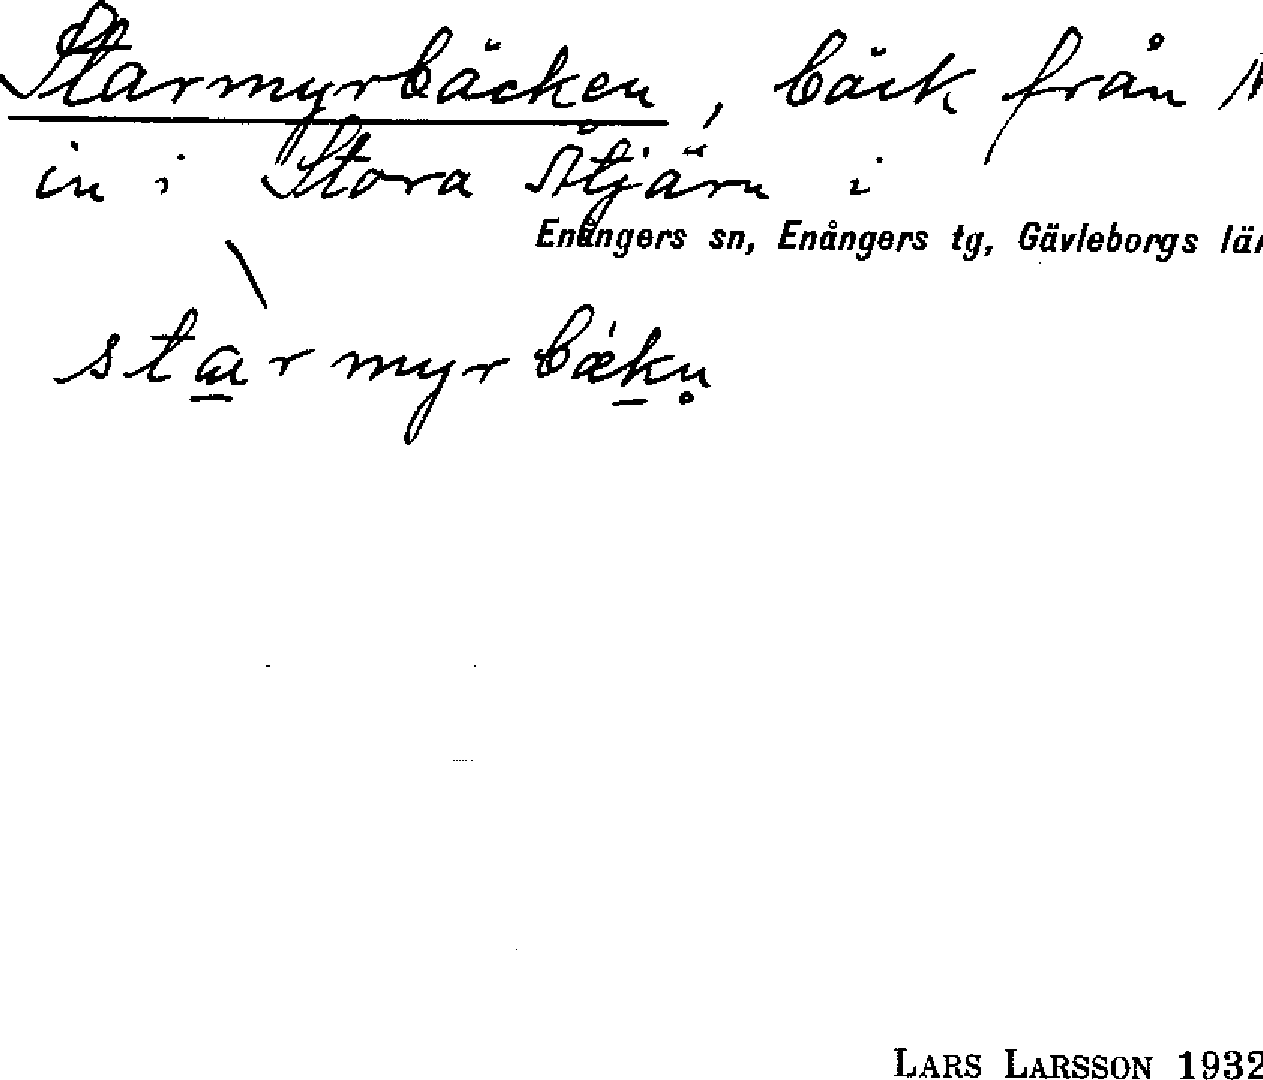 Starmyrbäcken, bäck från N
in i Stora Åtjärn i
Enångers sn, Enångers tg, Gävleborgs län
starmyrbækn̥
LARS LARSSON 1932